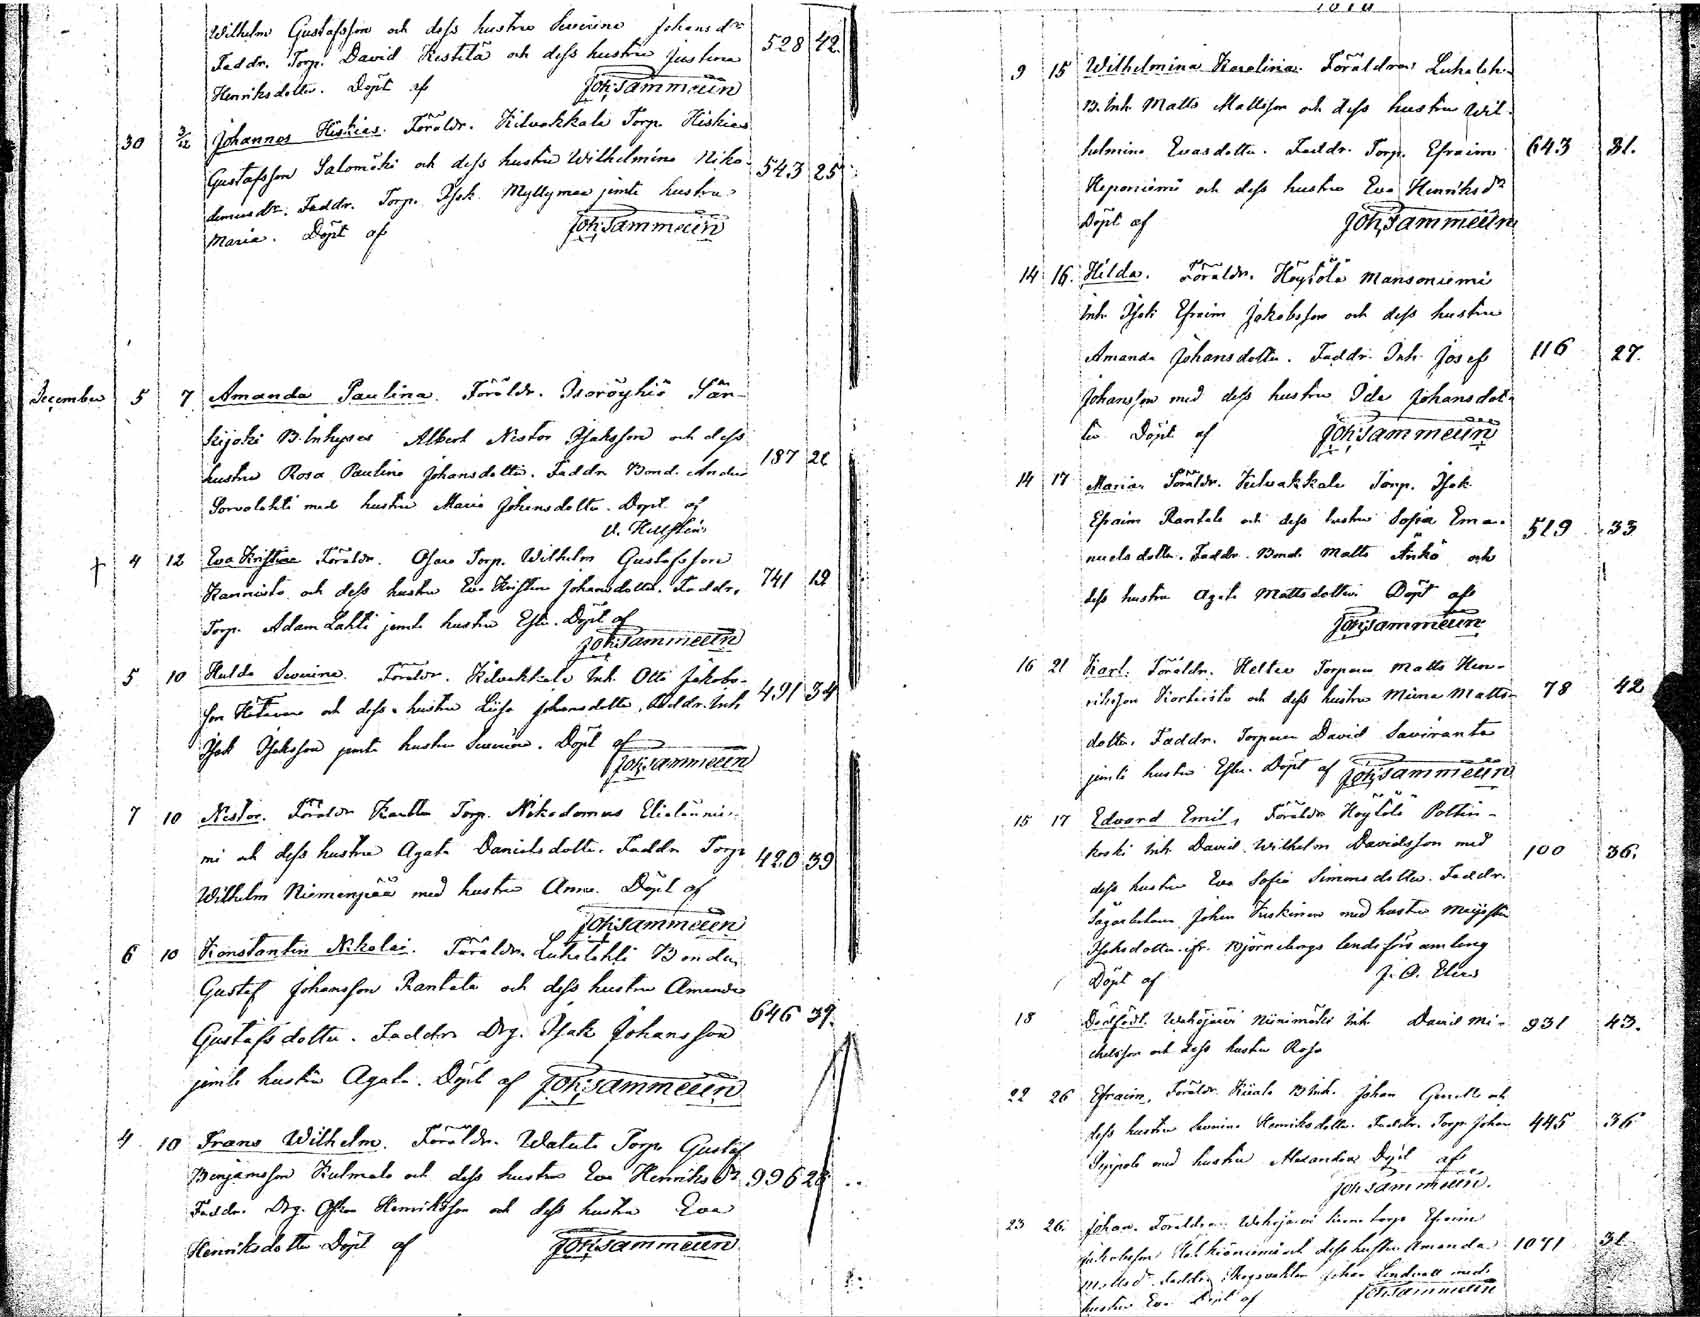 Wilhelm Gustafsson och dess hustru Severina Johansdr
Faddr. Torp. David Kestilä och dess hustru Justina 528 42
Henriksdotter. Döpt af Joh: Sammelin
30 3/12 Johannes Hiskias. Föräldr. Kilvakkala Torp. Hiskias
Gustafsson Salomäki och dess hustru Wilhelmina Niko- 543 25
demusdr. Faddr. Torp. Isak Myllymaa jemte hustru
Maria. Döpt af Joh: Sammelin
December 5 7 Amanda Paulina. Föräldr. Isoröyhiö Sän-
kijoki B. Inhyses Albert Nestor Isaksson och dess
hustru Rosa Paulina Johansdotter. Faddr Bond. Anders 187 21
Sorvalahti med hustru Maria Johansdotter. Döpt af
† 4 12 Eva Kristina Föräldr. Osara Torp. Wilhelm Gustafsson
Kannisto och dess hustru Eva Kristina Johansdotter. Faddr. 741 19
Torp. Adam Lahti jemte hustru Ester. Döpt af
Joh: Sammelin
5 10 Hulda Severina. Föräldr. Kilvakkala Inh. Otto Jakobs-
son och dess hustru Lisa Johansdotter. Faddr. Inh 491 34
Isak Isaksson jemte hustru Severina. Döpt af
Joh: Sammelin
7 10 Nestor. Föräldr Torp. Nikodemus
och dess hustru Agata Danielsdotter. Faddr Torp 420 39
Wilhelm Niemenpää med hustru Anna. Döpt af
Joh: Sammelin
6 10 Konstantin Nikolai. Föräldr. Luhalahti Bonden
Gustaf Johansson Rantala och dess hustru Amanda 646 39.
Gustafsdotter. Faddr Drg. Isak Johansson
jemte hustru Agata. Döpt af Joh: Sammelin
4 10 Frans Wilhelm. Föräldr. Watula Torp Gustaf
Benjamsson Kulmala och dess hustru Eva Henriksdr 996 28
Faddr. Drg. Henriksson och dess hustru Eva
Henriksdotter Döpt af Joh: Sammelin
9 15 Wilhelmina Karolina. Föräldrar Luhalah.
B. Inh Matts Mattsson och dess hustru Wil-
helmina Evasdotter. Faddr. Torp. Efraim 643 31.
Heponiemi och dess hustru Eva Henriksdr
Döpt af Joh: Sammelin
14 16. Hilda. Föräldr. Höytölä Mansoniemi
Inh Isak Efraim Jakobsson och dess hustru
Amanda Johansdotter. Faddr. Inh Josef 116 27.
Johansson med dess hustru Ida Johansdot-
ter. Döpt af Joh: Sammelin
14 17 Maria. Föräldr. Kilvakkala Torp. Isak
Efraim Rantala och dess hustru Sofia Ema- 519 33
nuelsdotter. Faddr. Bond. Matts och
dess hustru Agata Mattsdotter. Döpt af
Joh: Sammelin
16 21 Karl. Föräldr. Torparen Matts Hen-
riksson och dess hustru Miina Matts- 78 42
dotter. Faddr. Torparen David Saviranta
jemte hustru Ester. Döpt af Joh: Sammelin
15 17 Edvard Emil, Föräldr Höytölä Poltin-
koski Inh David Wilhelm Davidsson med 100 36.
dess hustru Eva Sofia Simonsdotter. Faddr.
Sågarbetaren Johan Kiskinen med hustru
Isaksdotter ifr. Björneborgs landsförsamling
Döpt af
18 Dödfödt. Wehojärvi Niinimäki Inh. David Mi- 931 43.
chelsson och dess hustru Rosa
22 26 Efraim, Föräldr. B. Inh. Johan och
dess hustru Severina Henriksdotter. Faddr. Torp Johan 445 36
med hustru Alexandra Döpt af
Joh: Sammelin.
23 26. Johan. Föräldrar Wehojärvi torp Efraim
och dess hustru Amanda 1071 31
Faddr Skogsvaktar Johan Lindvall med
hustru Eva Döpt af Joh: Sammelin